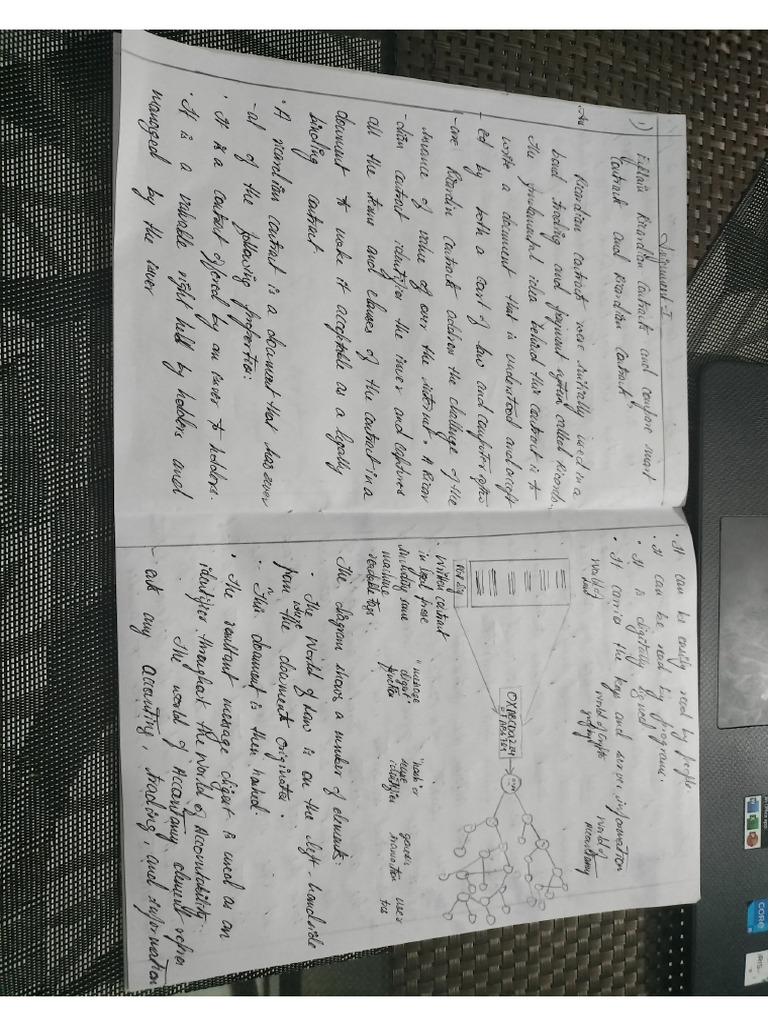 Assignment-I
1) Explain Ricardian contracts and compare smart
contract and Ricardian contract.
Ricardian contracts were initially used in a
bond trading and payment system called Ricardo.
The fundamental idea behind this contract is to
write a document that is understood and accept
-ed by both a court of law and computer software
Ricardian contracts address the challenge of the
issuance of value of over the internet. A Ricar
-dian contract identifies the issuer and captures
all the terms and clauses of the contract in a
document to make it acceptable as a legally
binding contract.
• A ricardian contract is a document that has sever
-al of the following properties:
• It is a contract offered by an issuer to holders.
• It is a valuable right held by holders and
managed by the issuer
• It can be easily read by people.
• It can be read by programs
• It is digitally signed
• It carries the keys and server information
world of law
world of crypto
world of accountancy
• written contract
in legal prose
including some
machine
readable tags.
"message digest" function
"hash" or
identifier
transaction
The diagram shows a number of elements:
• The World of Law is on the left-hand side
from where the document originates.
• This document is then hashed.
• The resultant message digest is used as an
identifier throughout the World of Accountability.
The world of Accountancy element refers
any accounting, trading, and information
CORE